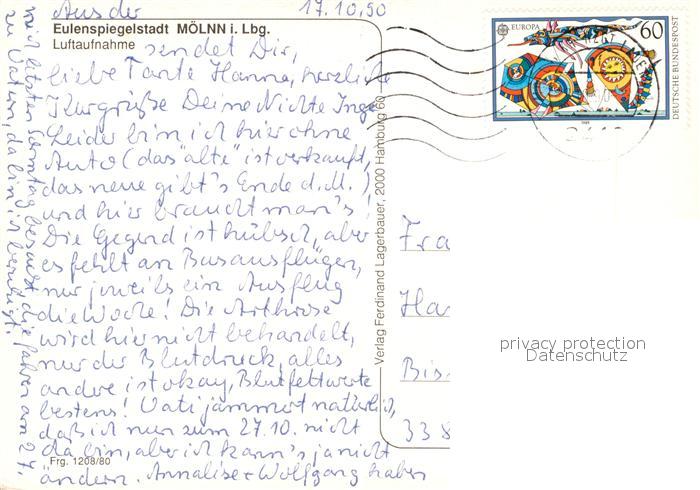 Aus der 17.10.90
Eulenspiegelstadt MÖLNN i. Lbg.
Luftaufnahme
sendet Dir,
liebe Tante Hanna, herzliche
Kurgrüße Deine Nichte Inge
Leider bin ich hier ohne
Auto (das "alte" ist verkauft,
das neue gibt's Ende d.M.)
und hier braucht man's!
Die Gegend ist hübsch, aber
es fehlt an Busausflügen,
nur jeweils ein Ausflug
die Woche! Die Arthrose
wird hier nicht behandelt,
nur der Blutdruck, alles
andre ist okay, Blutfettwerte
bestens! Vati jammert natürlich,
daß ich nun zum 27.10. nicht
da bin, aber ich kann's ja nicht
ändern. Annaliese + Wolfgang haben
mich letzten Samstag besucht, die fahren am 27.
zu Vatern, da bin ich beruhigt.
Frg. 1208/80
Verlag Ferdinand Lagerbauer, 2000 Hamburg 60
EUROPA 60
DEUTSCHE BUNDESPOST
1989
Fra
Ha
Bis
33 8
privacy protection
Datenschutz